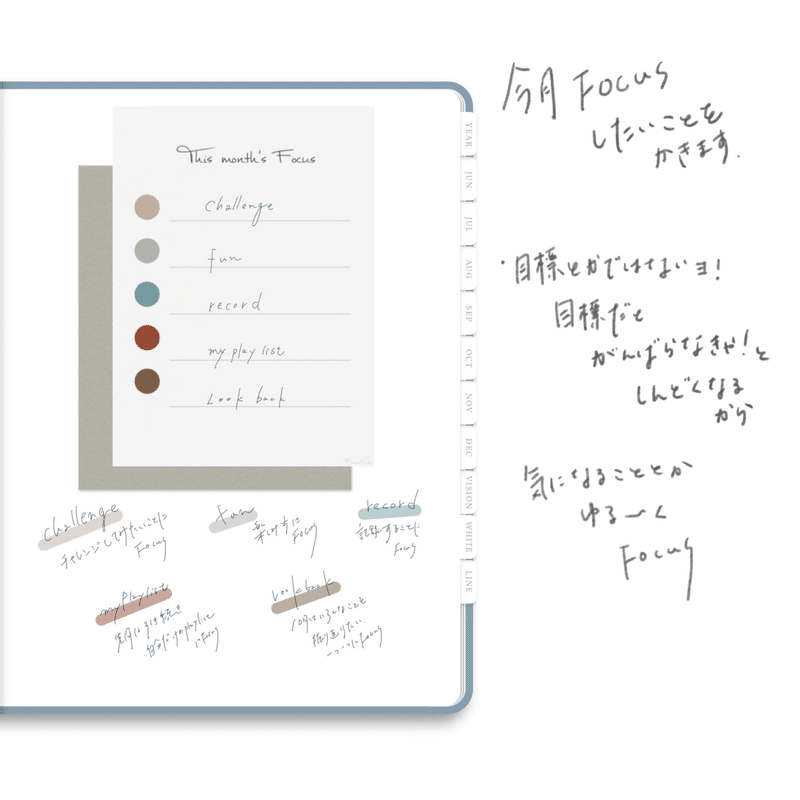 This month's Focus
challenge
fun
record
my play list
Look back
challenge
チャレンジしてみたいことに
Focus
fun
楽しめすに
Focus
record
記録することに
Focus
my playlist
先月に引き続き
自分だけのplaylist
にFocus
Look back
10月はいろんなこと
振り返りたい
一つ一つにFocus
YEAR
JUN
JUL
AUG
SEP
OCT
NOV
DEC
VISION
WHITE
LINE
今月 Focus
したいことを
かきます.
・目標とかではないョ!
目標だと
がんばらなきゃ!と
しんどくなる
から
気になることとか
ゆる〜く
Focus